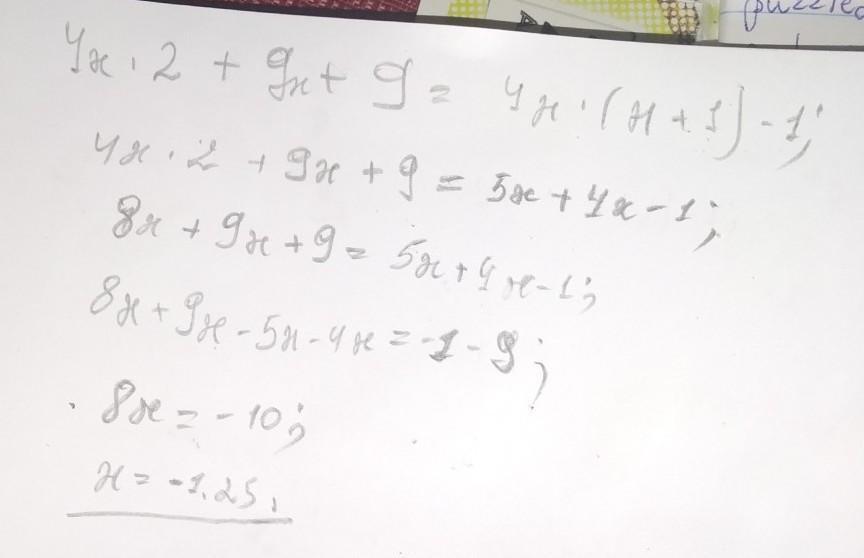 puzzled
4x · 2 + 9x + 9 = 4x · (x + 1) - 1;
4x · 2 + 9x + 9 = 5x + 4x - 1;
8x + 9x + 9 = 5x + 4x - 1;
8x + 9x - 5x - 4x = -1 - 9;
8x = -10;
x = -1.25.